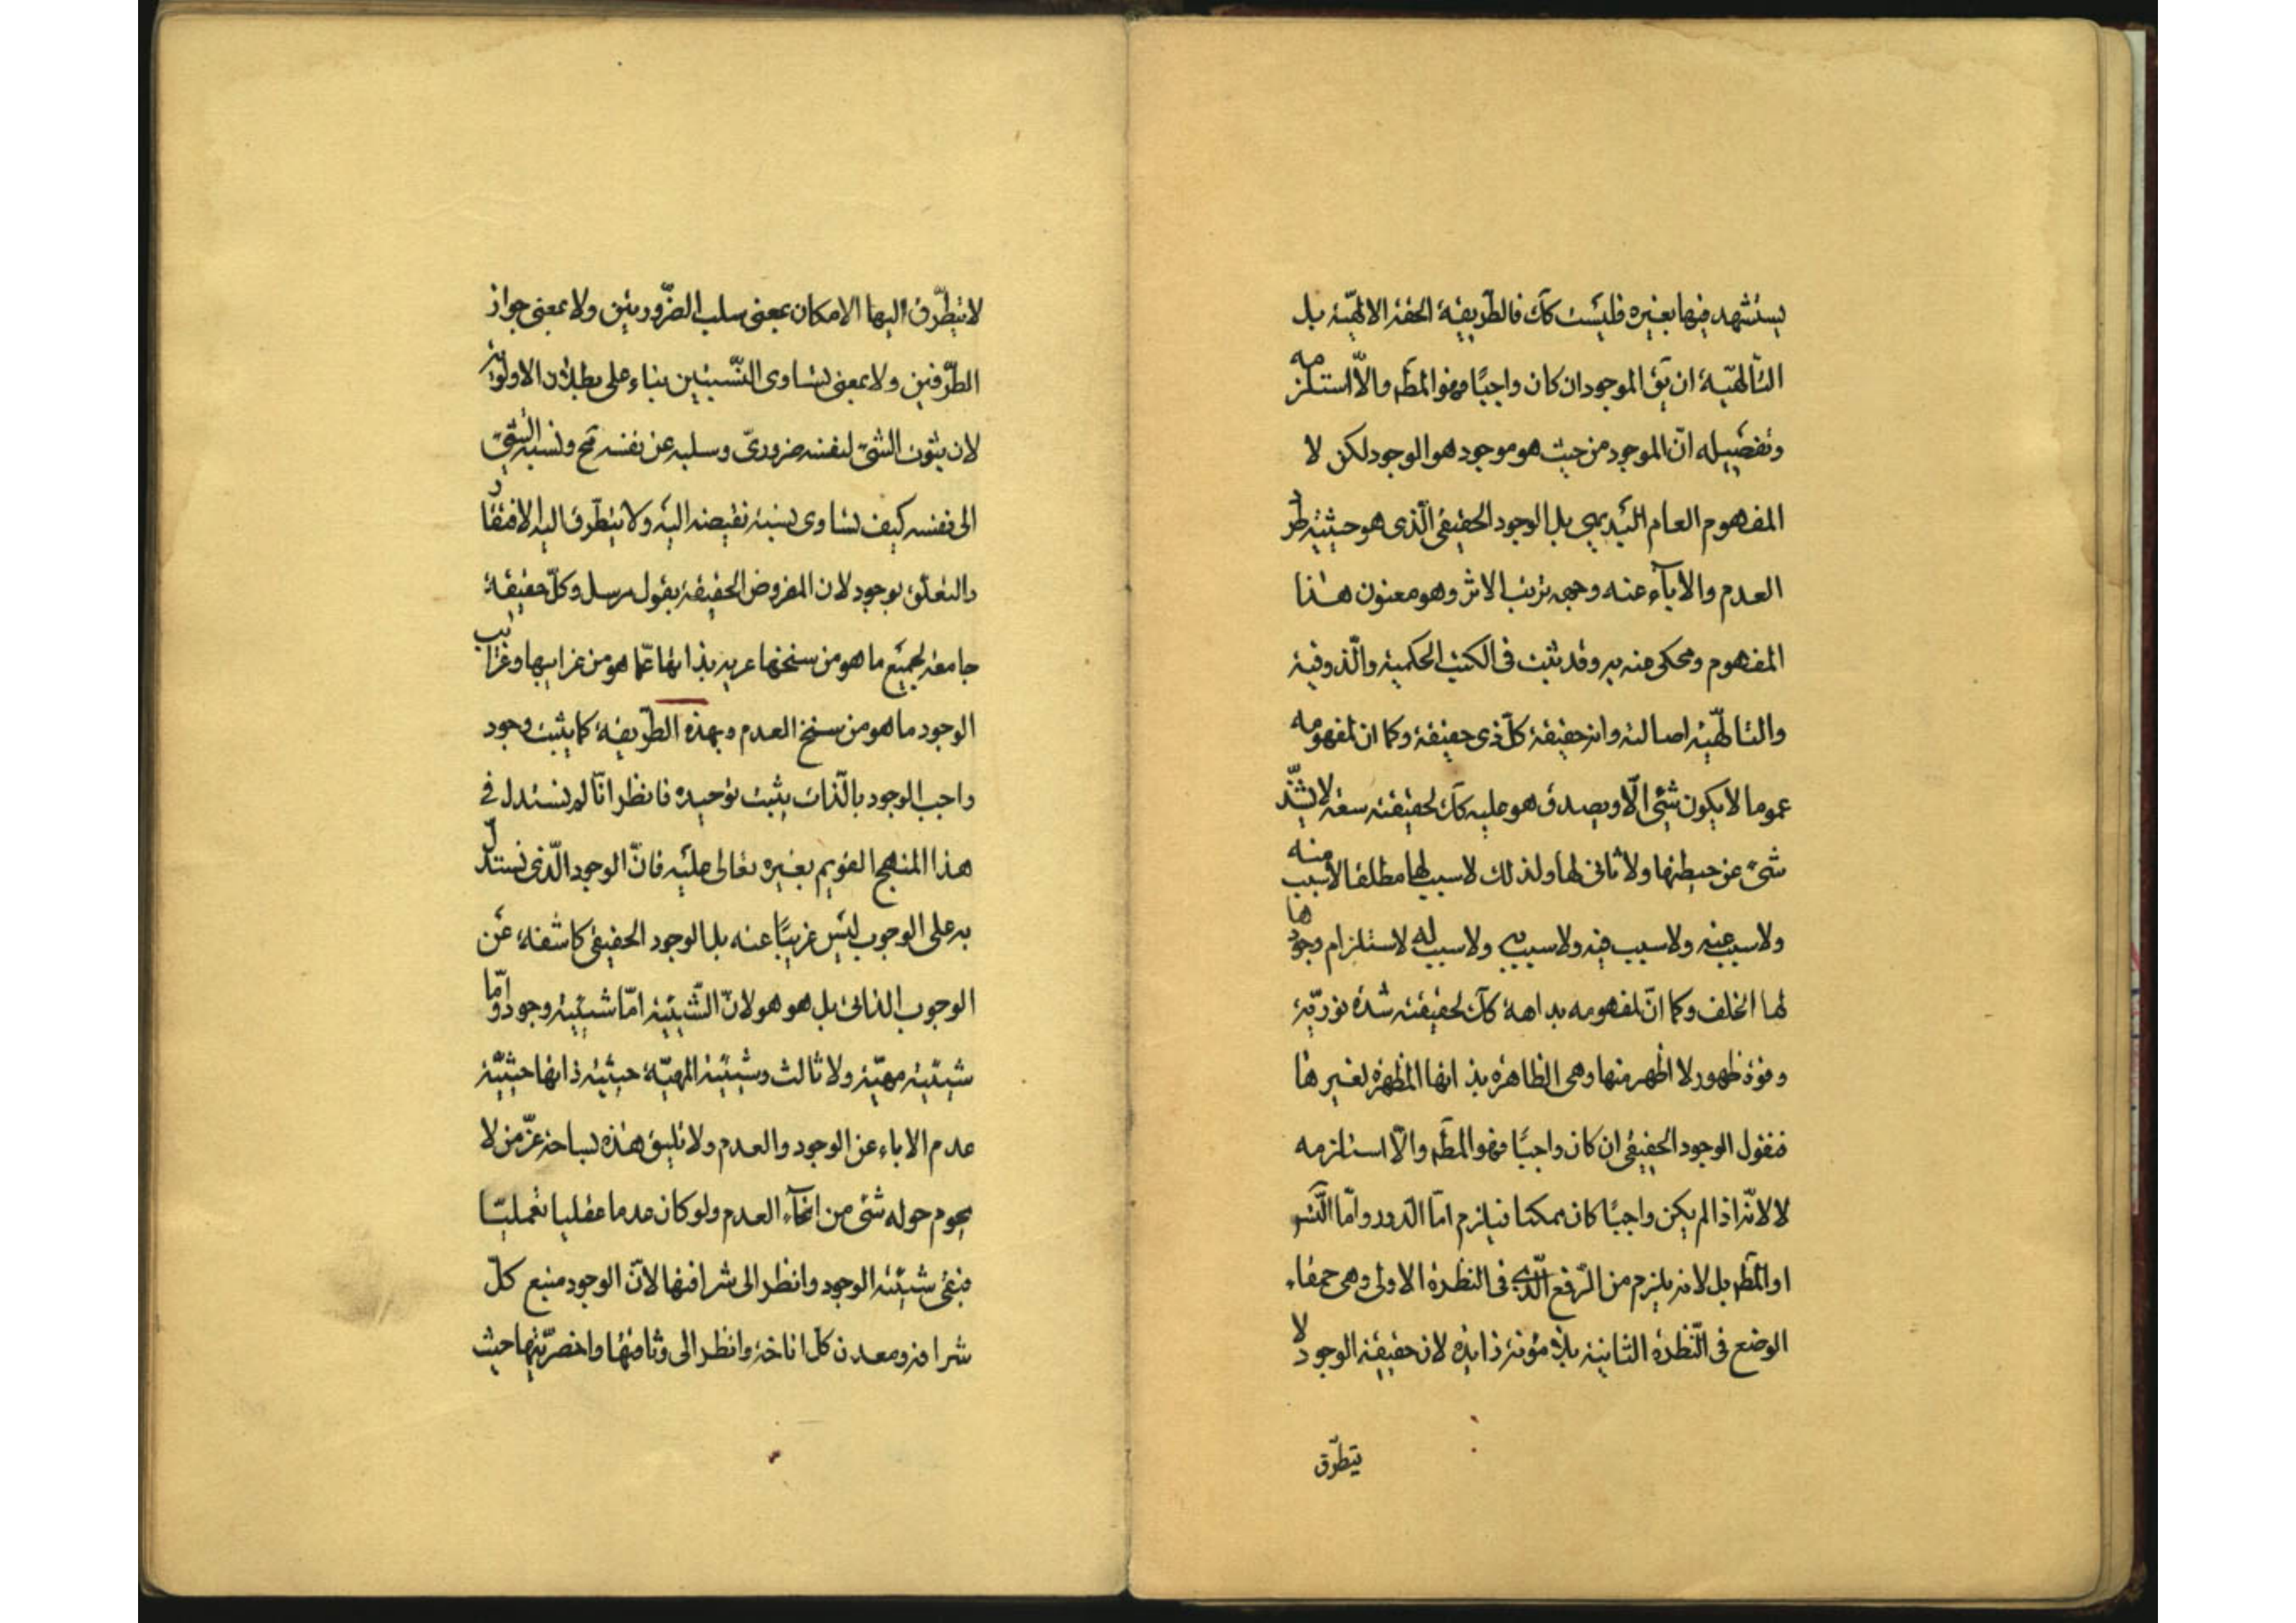 يستشهد فيها بغيره فليست كك فالطريقة الحقة الالهيّة بل
التالهيّة ان يق الموجود ان كان واجبًا فهو المط والّا استلزمه
وتفصيله انّ الموجود من حيث هو موجود هو الوجود لكن لا
المفهوم العام البديهى بل الوجود الحقيقى الّذى هو حيثية طرد
العدم والاباء عنه وجهه ترتب الاثر وهو معنون هذا
المفهوم ومحكى عنه به وقد ثبت فى الكتب الحكمية والذوقية
والتالّهيّة اصالته وانه حقيقة كلّ ذى حقيقة وكما ان لمفهومه
عموما لا يكون شئ الّا ويصدق هو عليه كك لحقيقته سعة لا يشذّ
شئ عن حيطتها ولا ثانى لها ولذلك لا سبب لها مطلقا لا سبب منه
ولا سبب عنه ولا سبب فيه ولا سبب به ولا سبب له لاستلزام وجودها
لها الخلف وكما انّ لمفهومه بداهة كك لحقيقته شدة نوريّة
وقوة ظهور لا اظهر منها وهى الظاهرة بذاتها المظهرة لغيرها
فنقول الوجود الحقيقى ان كان واجبًا فهو المط والّا استلزمه
لا لانّه اذا لم يكن واجبًا كان ممكنا فيلزم امّا الدور وامّا التس
او المط بل لانه يلزم من الرفع الّذى فى النظرة الاولى وهى حمقاء
الوضع فى النّظرة الثانية بلا مؤنة زايدة لان حقيقة الوجود لا
يتطرّق
لا يتطرّق اليها الامكان بمعنى سلب الضّرورتين ولا بمعنى جواز
الطّرفين ولا بمعنى تساوى النّسبتين بناء على بطلان الاولويّة
لان ثبوت الشئ لنفسه ضرورىّ وسلبه عن نفسه مح ونسبة الشئ
الى نفسه كيف تساوى نسبة نقيضه اليه ولا يتطرّق اليه الافتقار
والتعلّق بوجود لان المفروض الحقيقة بقول مرسل وكلّ حقيقة
جامعة لجميع ما هو من سنخها عرية بذاتها عمّا هو من غرايبها وغرائب
الوجود ما هو من سنخ العدم وبهذه الطّريقة كما يثبت وجود
واجب الوجود بالذّات يثبت توحيده فانظر انّا لم نستدل فى
هذا المنهج القويم بغيره تعالى عليه فانّ الوجود الّذى نستدلّ
به على الوجوب ليس غريبًا عنه بل الوجود الحقيقى كاشفة عن
الوجوب الذاتى بل هو هو لانّ الشّيئيّة امّا شيئيّة وجود وامّا
شيئيّة مهيّة ولا ثالث وشيئيّة المهيّة حيثيّة ذاتها حيثيّة
عدم الاباء عن الوجود والعدم ولا تليق هذه بساحة عزّ من لا
يحوم حوله شئ من انحاء العدم ولو كان عدما عقليا تعمليّا
فبقى شيئيّة الوجود وانظر الى شرافتها لانّ الوجود منبع كلّ
شرافة ومعدن كل اناخة وانظر الى وثاقتها واخصريّتها حيث